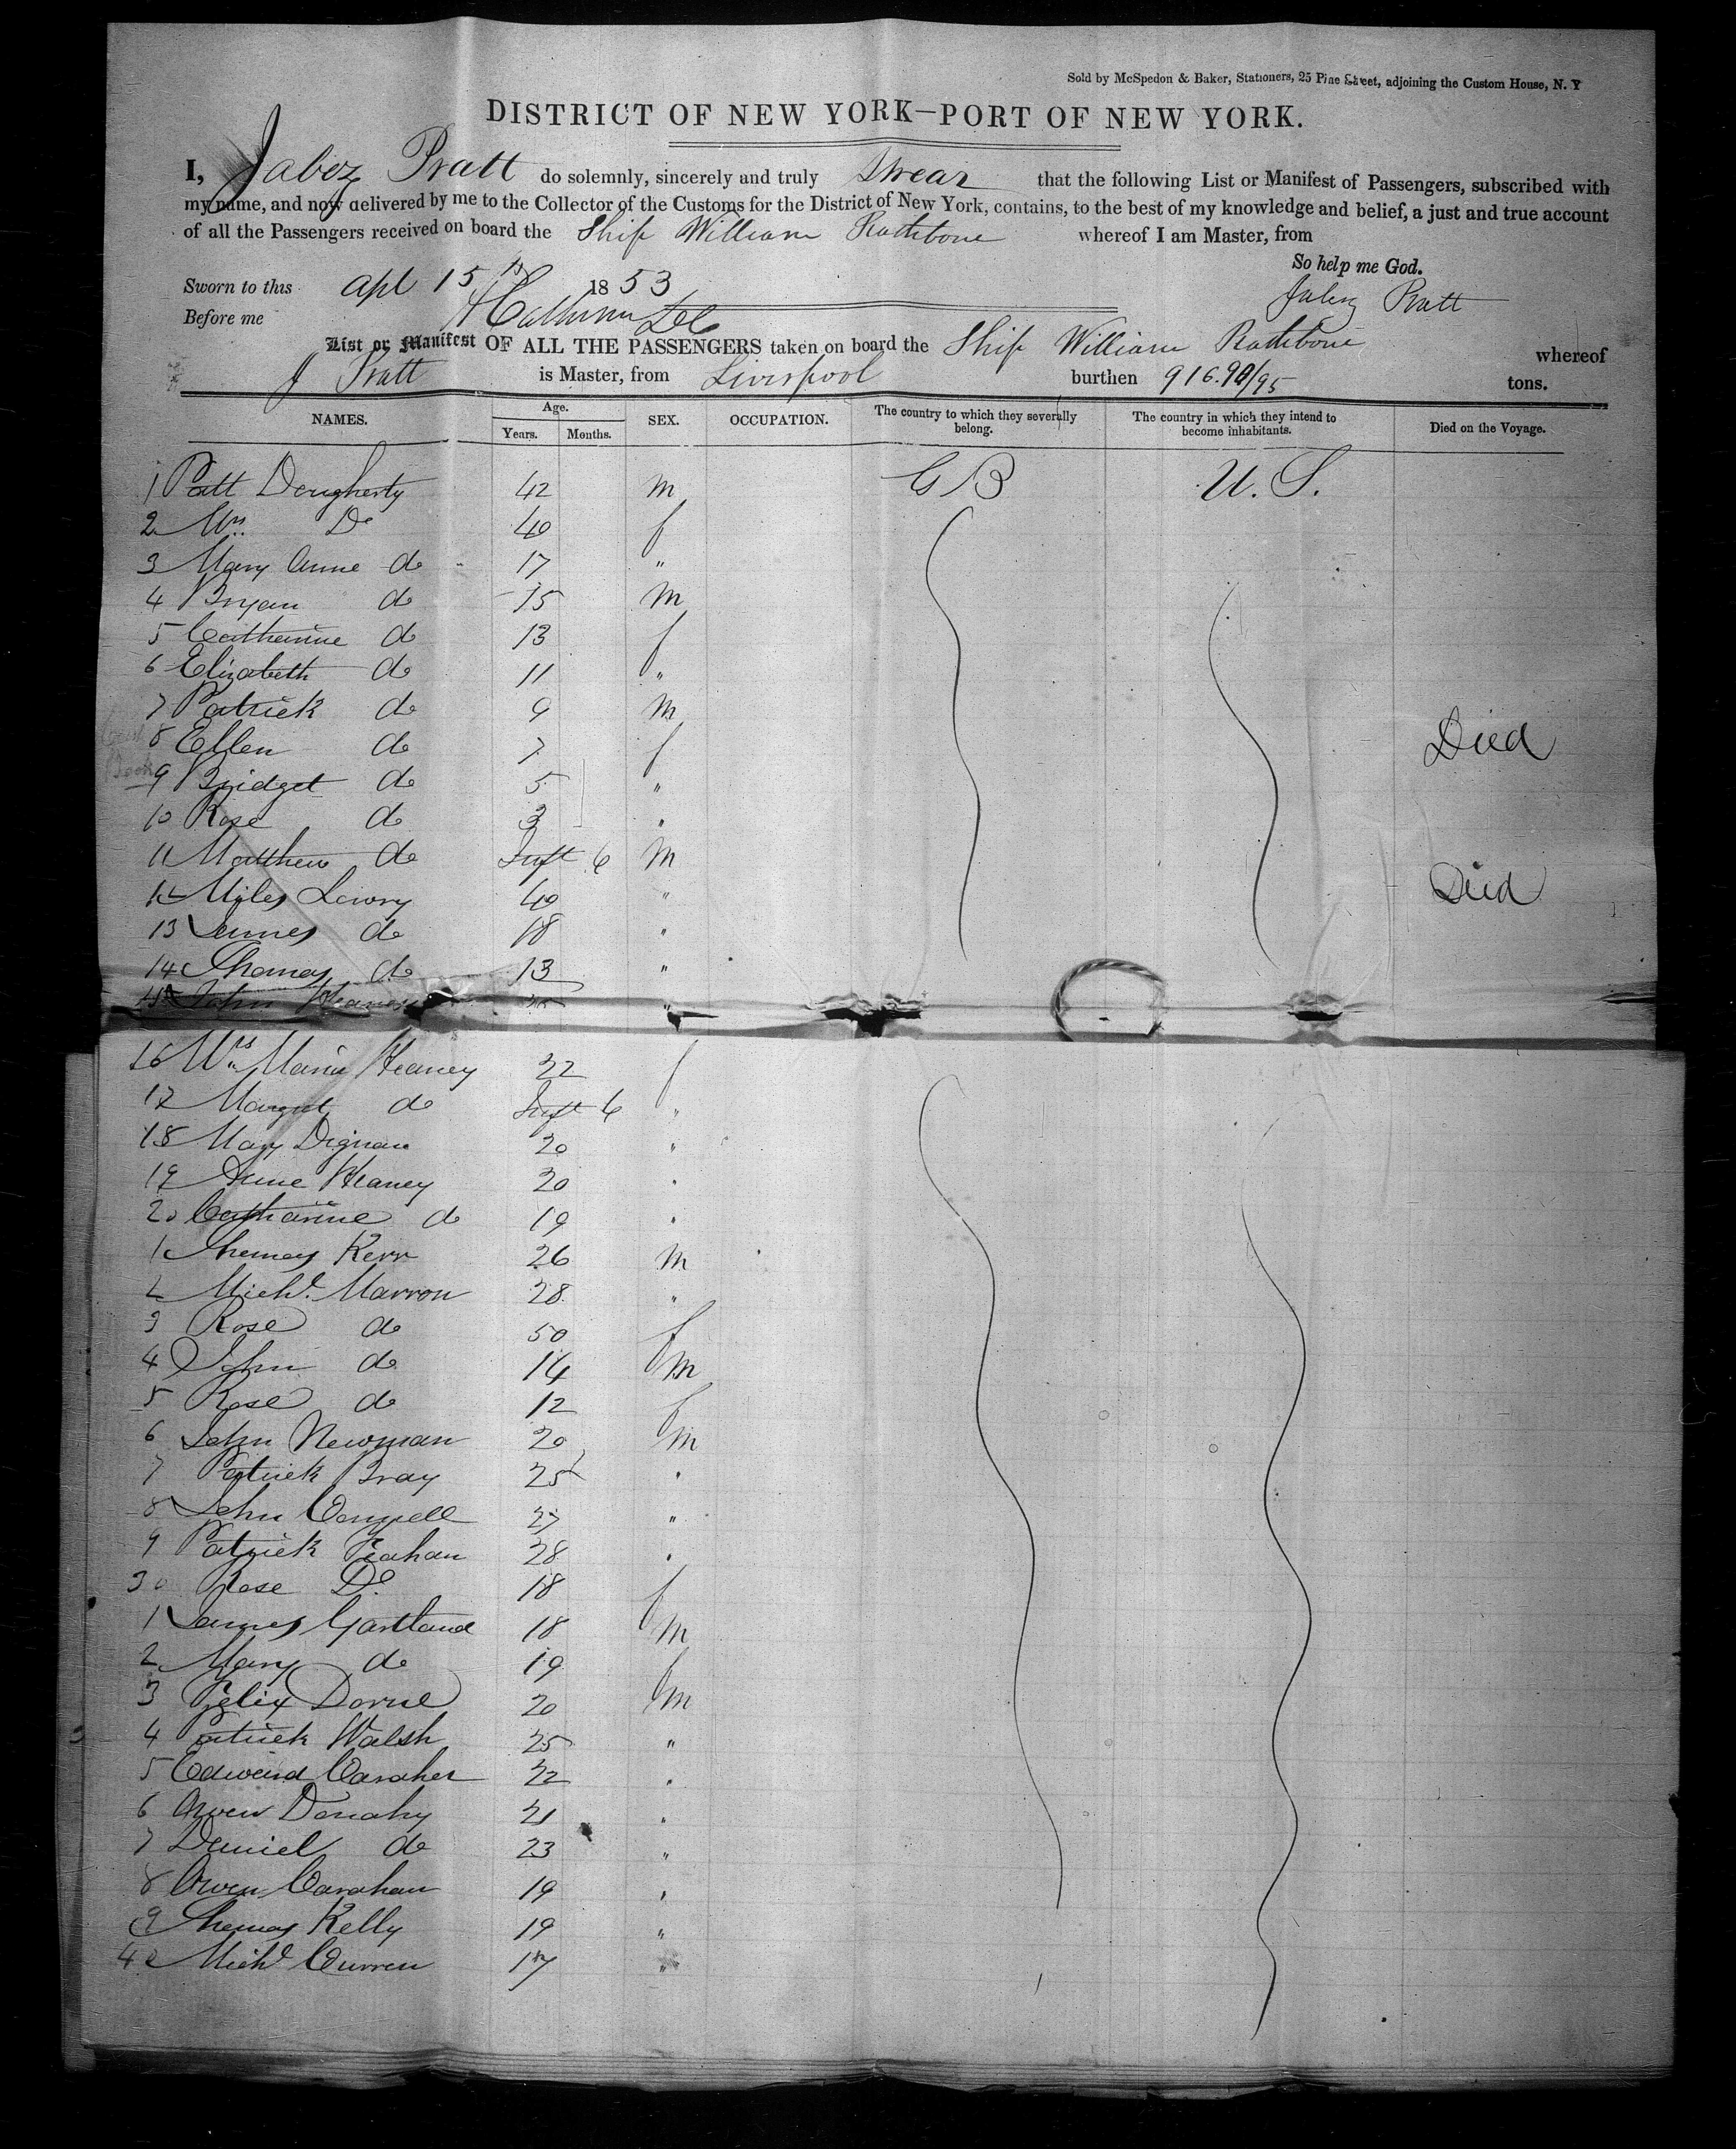 Sold by McSpedon & Baker, Stationers, 25 Pine Street, adjoining the Custom House, N. Y
DISTRICT OF NEW YORK—PORT OF NEW YORK.
I, Jabez Pratt do solemnly, sincerely and truly swear that the following List or Manifest of Passengers, subscribed with
my name, and now delivered by me to the Collector of the Customs for the District of New York, contains, to the best of my knowledge and belief, a just and true account
of all the Passengers received on board the Ship William Rathbone whereof I am Master, from
So help me God.
Sworn to this Apl 15th 1853 Jabez Pratt
Before me
List or Manifest OF ALL THE PASSENGERS taken on board the Ship William Rathbone whereof
J Pratt is Master, from Liverpool burthen 916.90/95 tons.
NAMES. Age. Years. Months. SEX. OCCUPATION. The country to which they severally belong. The country in which they intend to become inhabitants. Died on the Voyage.
1 Patt Dougherty 42 m G B U. S.
2 Mrs. Do 40 f
3 Mary Anne do 17 "
4 Bryan do 15 m
5 Catharine do 13 f
6 Elizabeth do 11 "
7 Patrick do 9 m
8 Ellen do 7 f Died
9 Bridget do 5 "
10 Rose do 3 "
11 Matthew do Inft 6 m
12 Miles Lowry 40 " Died
13 James do 18 "
14 Thomas do 13 "
15 John Heaney "
16 Mrs Maria Heaney 22 f
17 Margret do Inft 6 "
18 Mary Dignan 20 "
19 Anne Heaney 20 "
20 Catharine do 19 "
1 Thomas Kerr 26 m
2 Michl. Marron 28 "
3 Rose do 50 f
4 John do 14 m
5 Rose do 12 f
6 John Newman 20 m
7 Patrick Bray 25 "
8 John 27 "
9 Patrick 28 "
30 Rose Do. 18 f
1 James Gartland 18 m
2 Mary do 19 f
3 Felix 20 m
4 Patrick Walsh 25 "
5 Edward Caraher 22 "
6 Owen Donahy 21 "
7 Daniel do 23 "
8 Owen Carahan 19 "
9 Thomas Kelly 19 "
40 Michl Curren 17 "